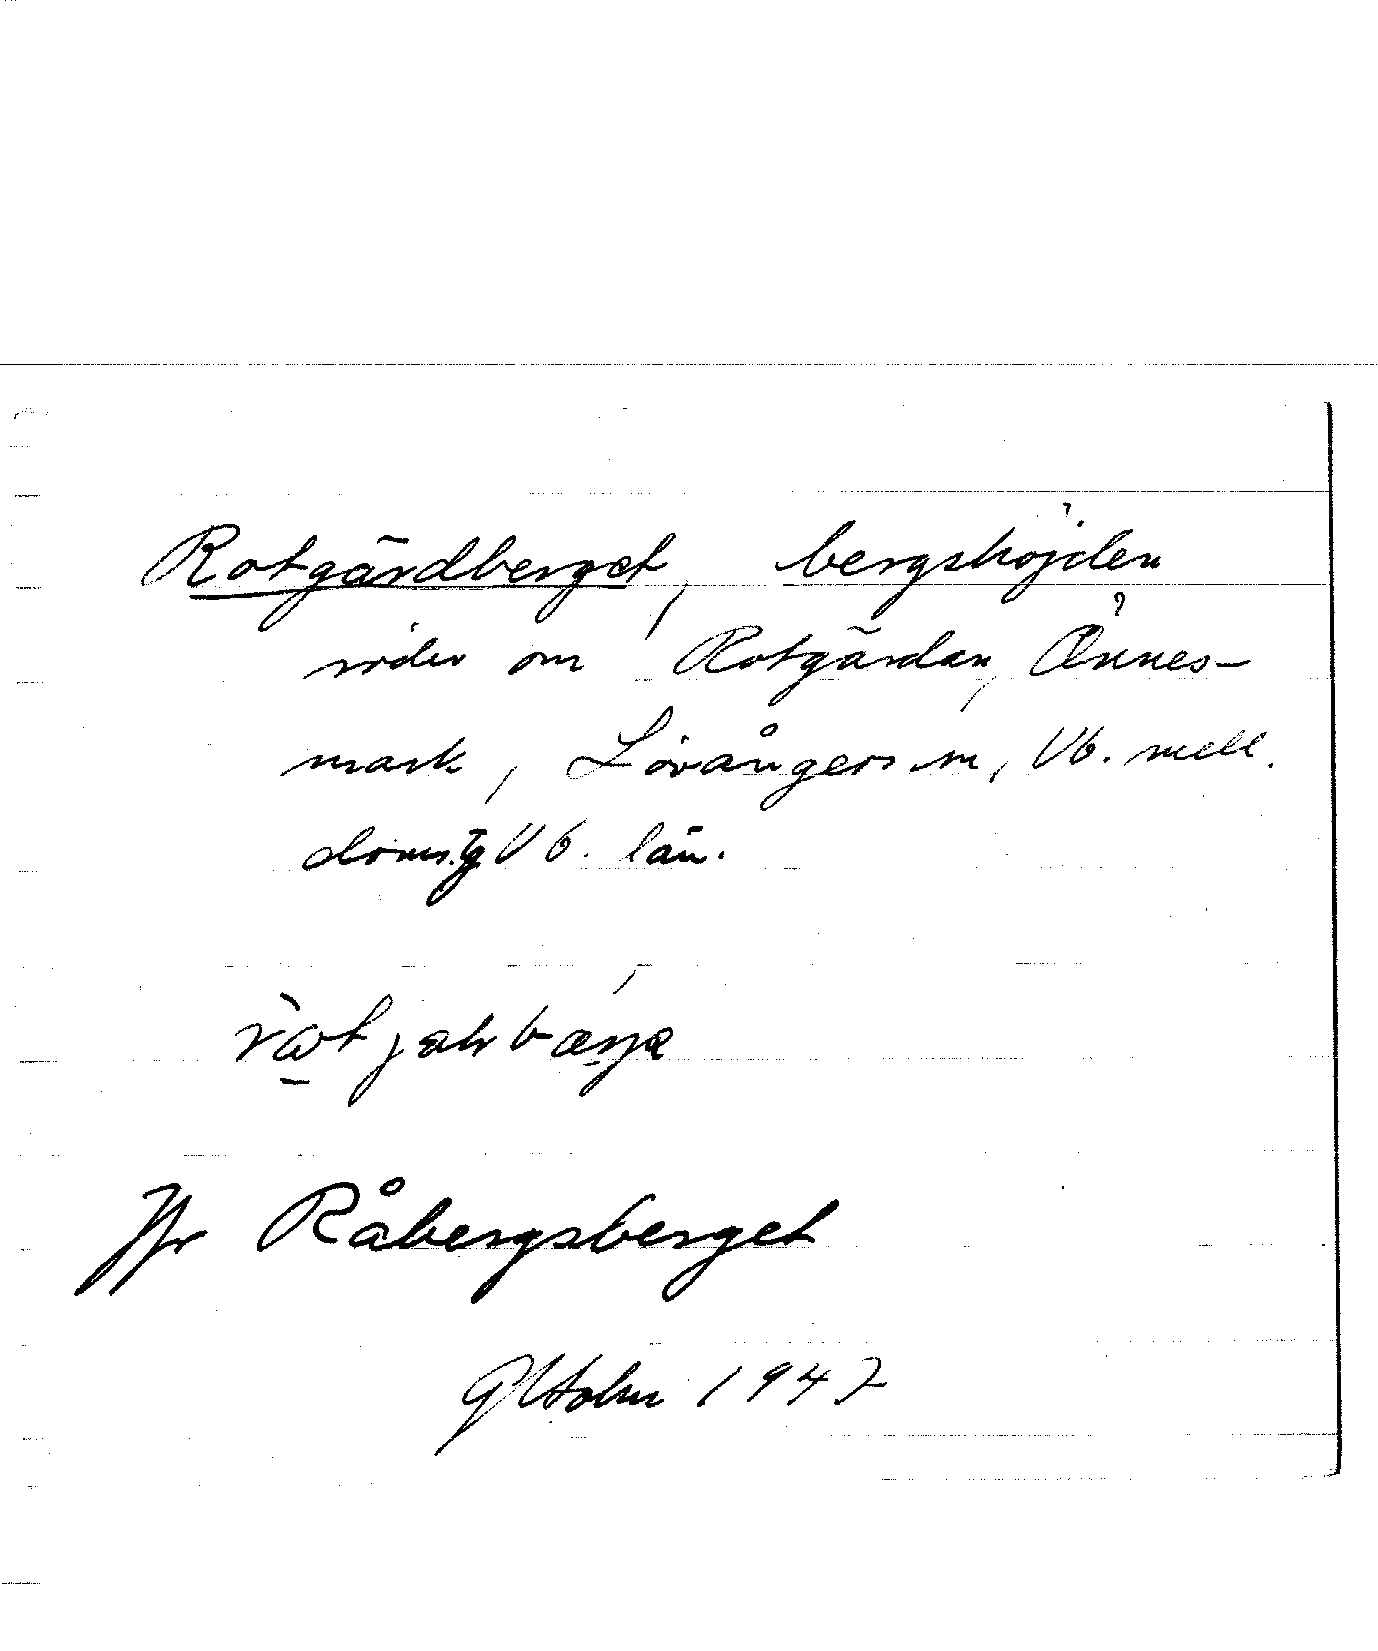 Rotgärdberget, bergshöjden
söder om Rotgärdan, Önnes-
mark, Lövångers sn, Vb. mell.
doms.g Vb. län.
Jfr Råbergsberget
1947